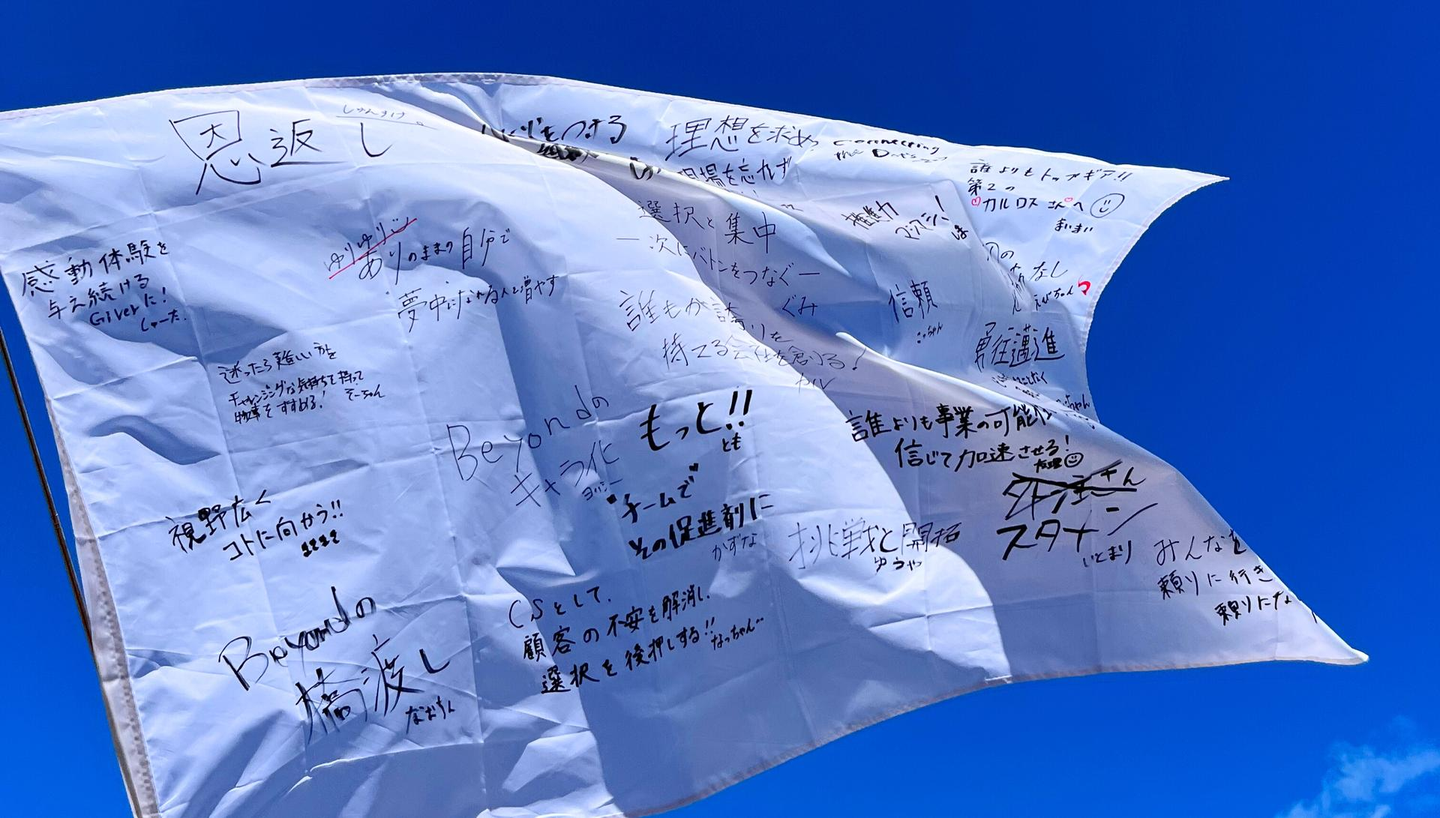 恩返し
理想を求め
現場を忘れず
誰よりもトップギア!!
第2の
カルロス
まいまい
選択と集中
一次にバトンをつなぐー
ぐみ
感動体験を
与え続ける
Giverに!
しゅーた.
ゆりゆり
ありのままの自分で
夢中になれる人を増やす
誰もが誇りを
持てる会社を創る!
信頼
勇往邁進
迷ったら難しい方を
チャレンジングな気持ちを持って
物事をすすめる!
そーちゃん
Beyondの
キャラ化
もっと!!
とも
誰よりも事業の可能
信じて加速させる!
スタメン
いとまり
視野広く
コトに向かう!!
"チームで"
その促進剤に
かずな
挑戦と開拓
ゆうやっ
みんなを
頼りに行き
頼りにな
Beyondの
橋渡し
なおちん
CSとして、
顧客の不安を解消し、
選択を後押しする!!
なっちゃん